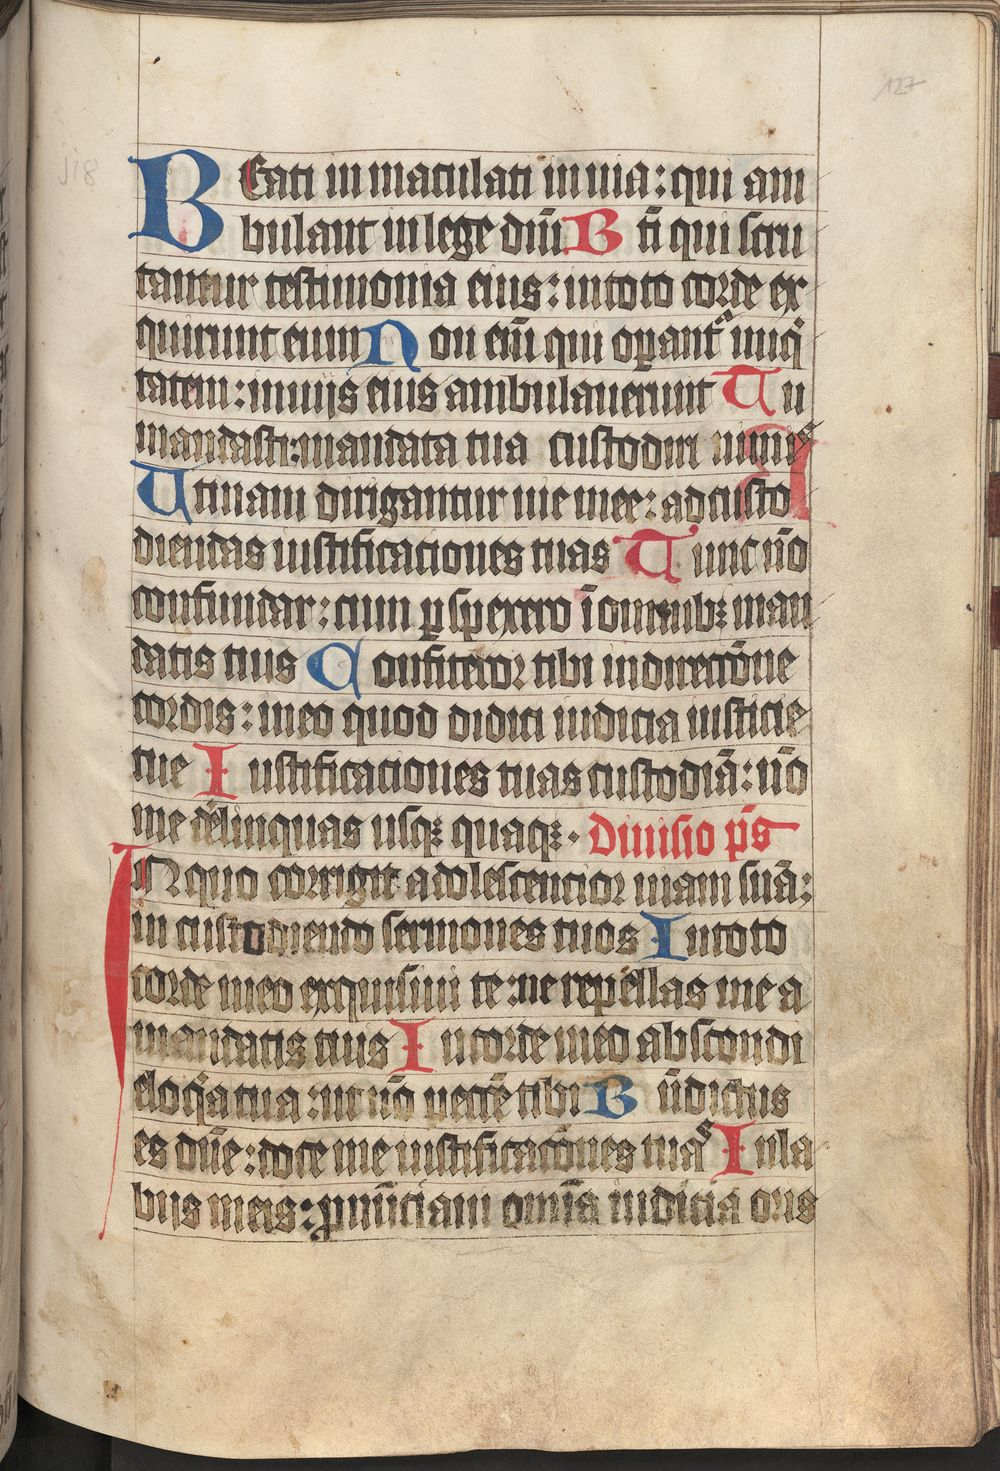 127
118
BEati in maculati in uia: qui am
bulant in lege dn̄i B ti qui scru
tantur testimonia eius: in toto corde ex
quirunt eum Non em̄ qui op̄ant᷑ iniq̄
tatem: in uijs eius ambulauerunt Tu
mandasti: mandata tua custodiri nimis
Utinam dirigantur uie mee: ad custo
diendas iustificationes tuas Tunc nō
confundar: cum ꝑspexero ī omnibꝫ man
datis tuis Confitebor tibi in directiōne
cordis: in eo quod didici iudicia iusticie
tue Iustificationes tuas custodiā: nō
me derelinquas usqꝫ quaqꝫ. Diuisio p̄s
IN quo corrigit adolescentior uiam suā:
in custodiendo sermones tuos In toto
corde meo exquisiui te: ne repellas me a
mandatis tuis In corde meo abscondi
eloq̄a tua: ut nō peccē tibi Bn̄dictus
es dn̄e: doce me iustificatiōnes tuas In la
bijs meis: ꝓnūciaui omīa iudicia oris